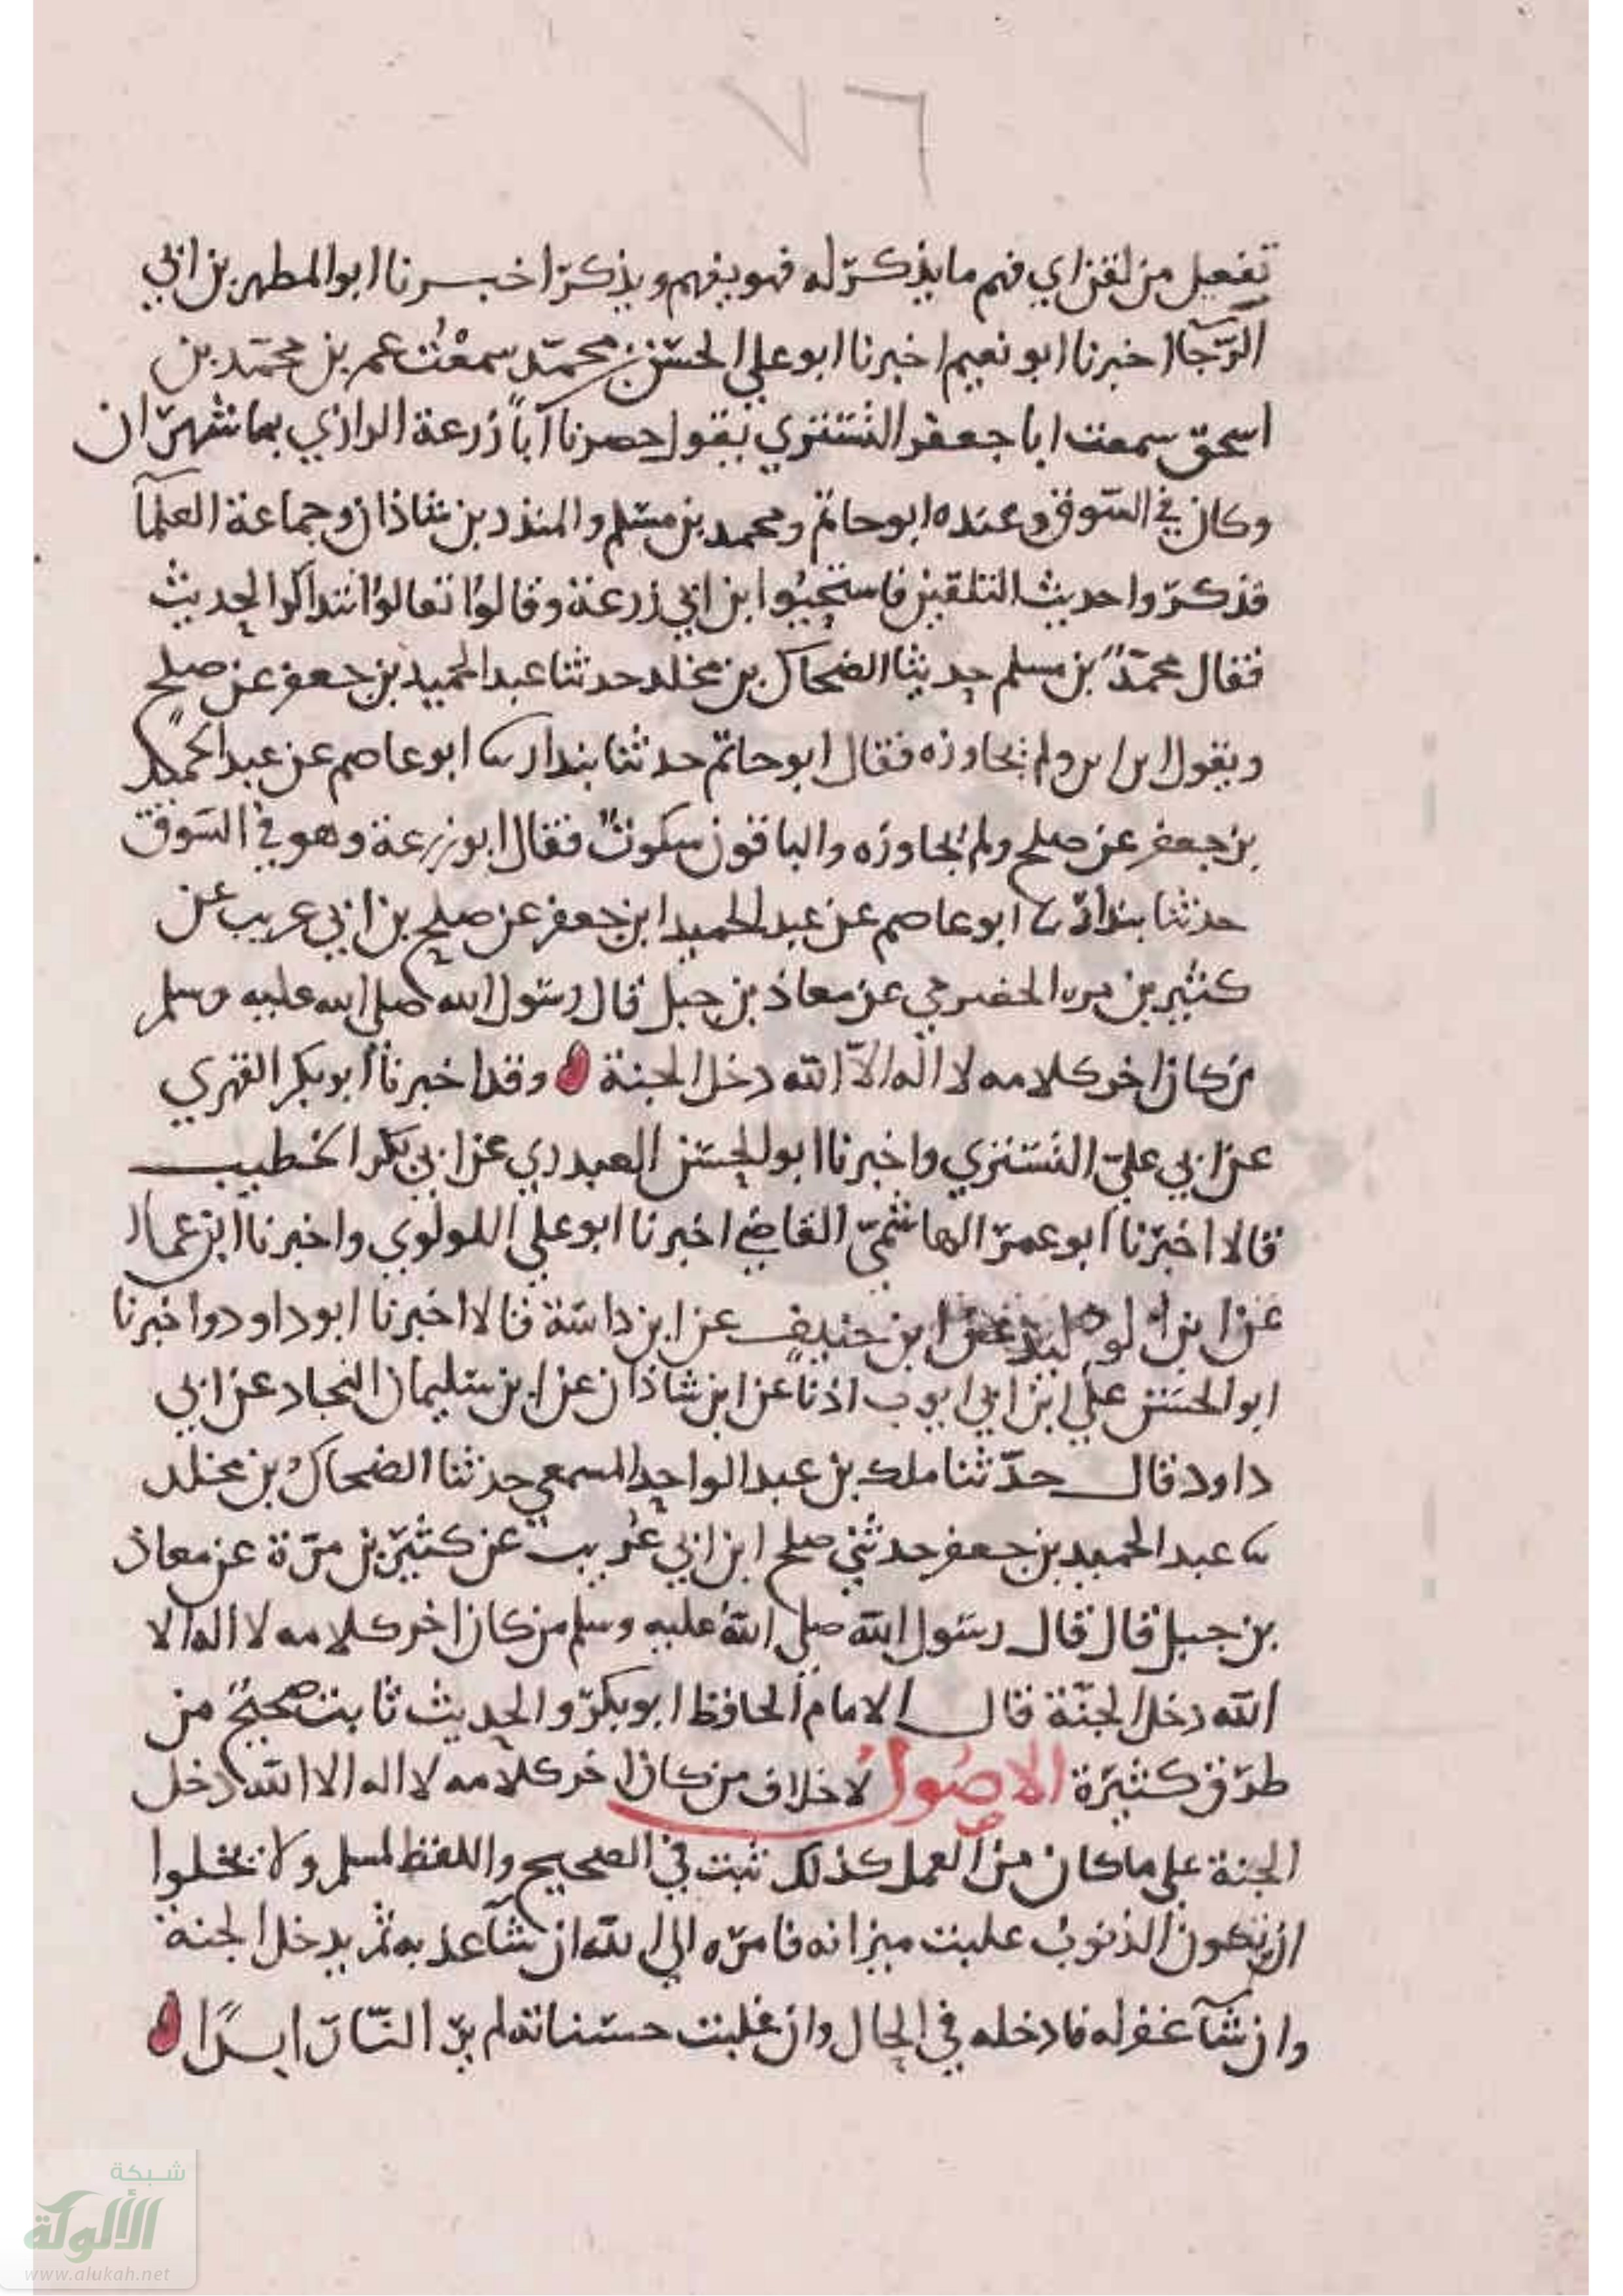 ٧٦
تفعيل من لقن اي فهم ما يذكر له فهو يفهم ويذكر اخبرنا ابو المطهر بن ابي
الرجا اخبرنا ابو نعيم اخبرنا ابو علي الحسن بن محمد سمعت عمر بن محمد بن
اسحق سمعت ابا جعفر التستري يقول حصرنا اباً زرعة الرازي بماشهران
وكان في السوق وعنده ابو حاتم ومحمد بن مسلم والمنذر بن شاذان وجماعة العلمآ
فذكروا حديث التلقين فاستحيوا ابن ابي زرعة وقالوا تعالوا نتذاكر الحديث
فقال محمد بن مسلم حديثا الضحاك بن مخلد حدثنا عبد الحميد بن جعفر عن صلح
ويقول ابن ابن ولم يجاوزه فقال ابو حاتم حدثنا بندار سا ابو عاصم عن عبد الحميد
بن جعفر عن صلح ولم يجاوزه والباقون سكوت فقال ابو زرعة وهو في السوق
حدثنا بندار سا ابو عاصم عن عبد الحميد ابن جعفر عن صلح بن ابي عريب عن
كثير بن مره الحضرمي عن معاذ بن جبل قال رسول الله صلى الله عليه وسلم
من كان اخر كلامه لا اله الا الله دخل الجنة وقد اخبرنا ابو بكر الفهري
عن ابي علي التستري واخبرنا ابو الحسن العبدري عن ابي بكر الخطيب
قالا اخبرنا ابو عمر الهاشمي القاضي اخبرنا ابو علي اللولوي واخبرنا ابن عمال
عن ابن ابن حنيف عن ابن داسة قالا اخبرنا ابو داود واخبرنا
ابو الحسن علي ابن ابي ايوب اذنا عن ابن شاذان عن ابن سليمان النجاد عن ابي
داود قال حدثنا ملك بن عبد الواحد المسمعي حدثنا الضحاك بن مخلد
سا عبد الحميد بن جعفر حدثني صلح ابن ابي عريب عن كثير بن مرة عن معاذ
بن جبل قال قال رسول الله صلى الله عليه وسلم من كان اخر كلامه لا اله الا
الله دخل الجنة قال الامام الحافظ ابو بكر والحديث ثابت صحيح من
طرق كثيرة الاصول لا خلاف من كان اخر كلامه لا اله الا الله دخل
الجنة على ما كان من العمل كذلك ثبت في الصحيح واللفظ لمسلم ولا يخلوا
ان يكون الذنوب علبت ميزانه فامره الي الله ان شآ عذبه ثم يدخل الجنة
وان شآ غفر له فادخله في الحال وان غلبت حسناته لم ير النار ابدًا
شبكة
الألوكة
www.alukah.net